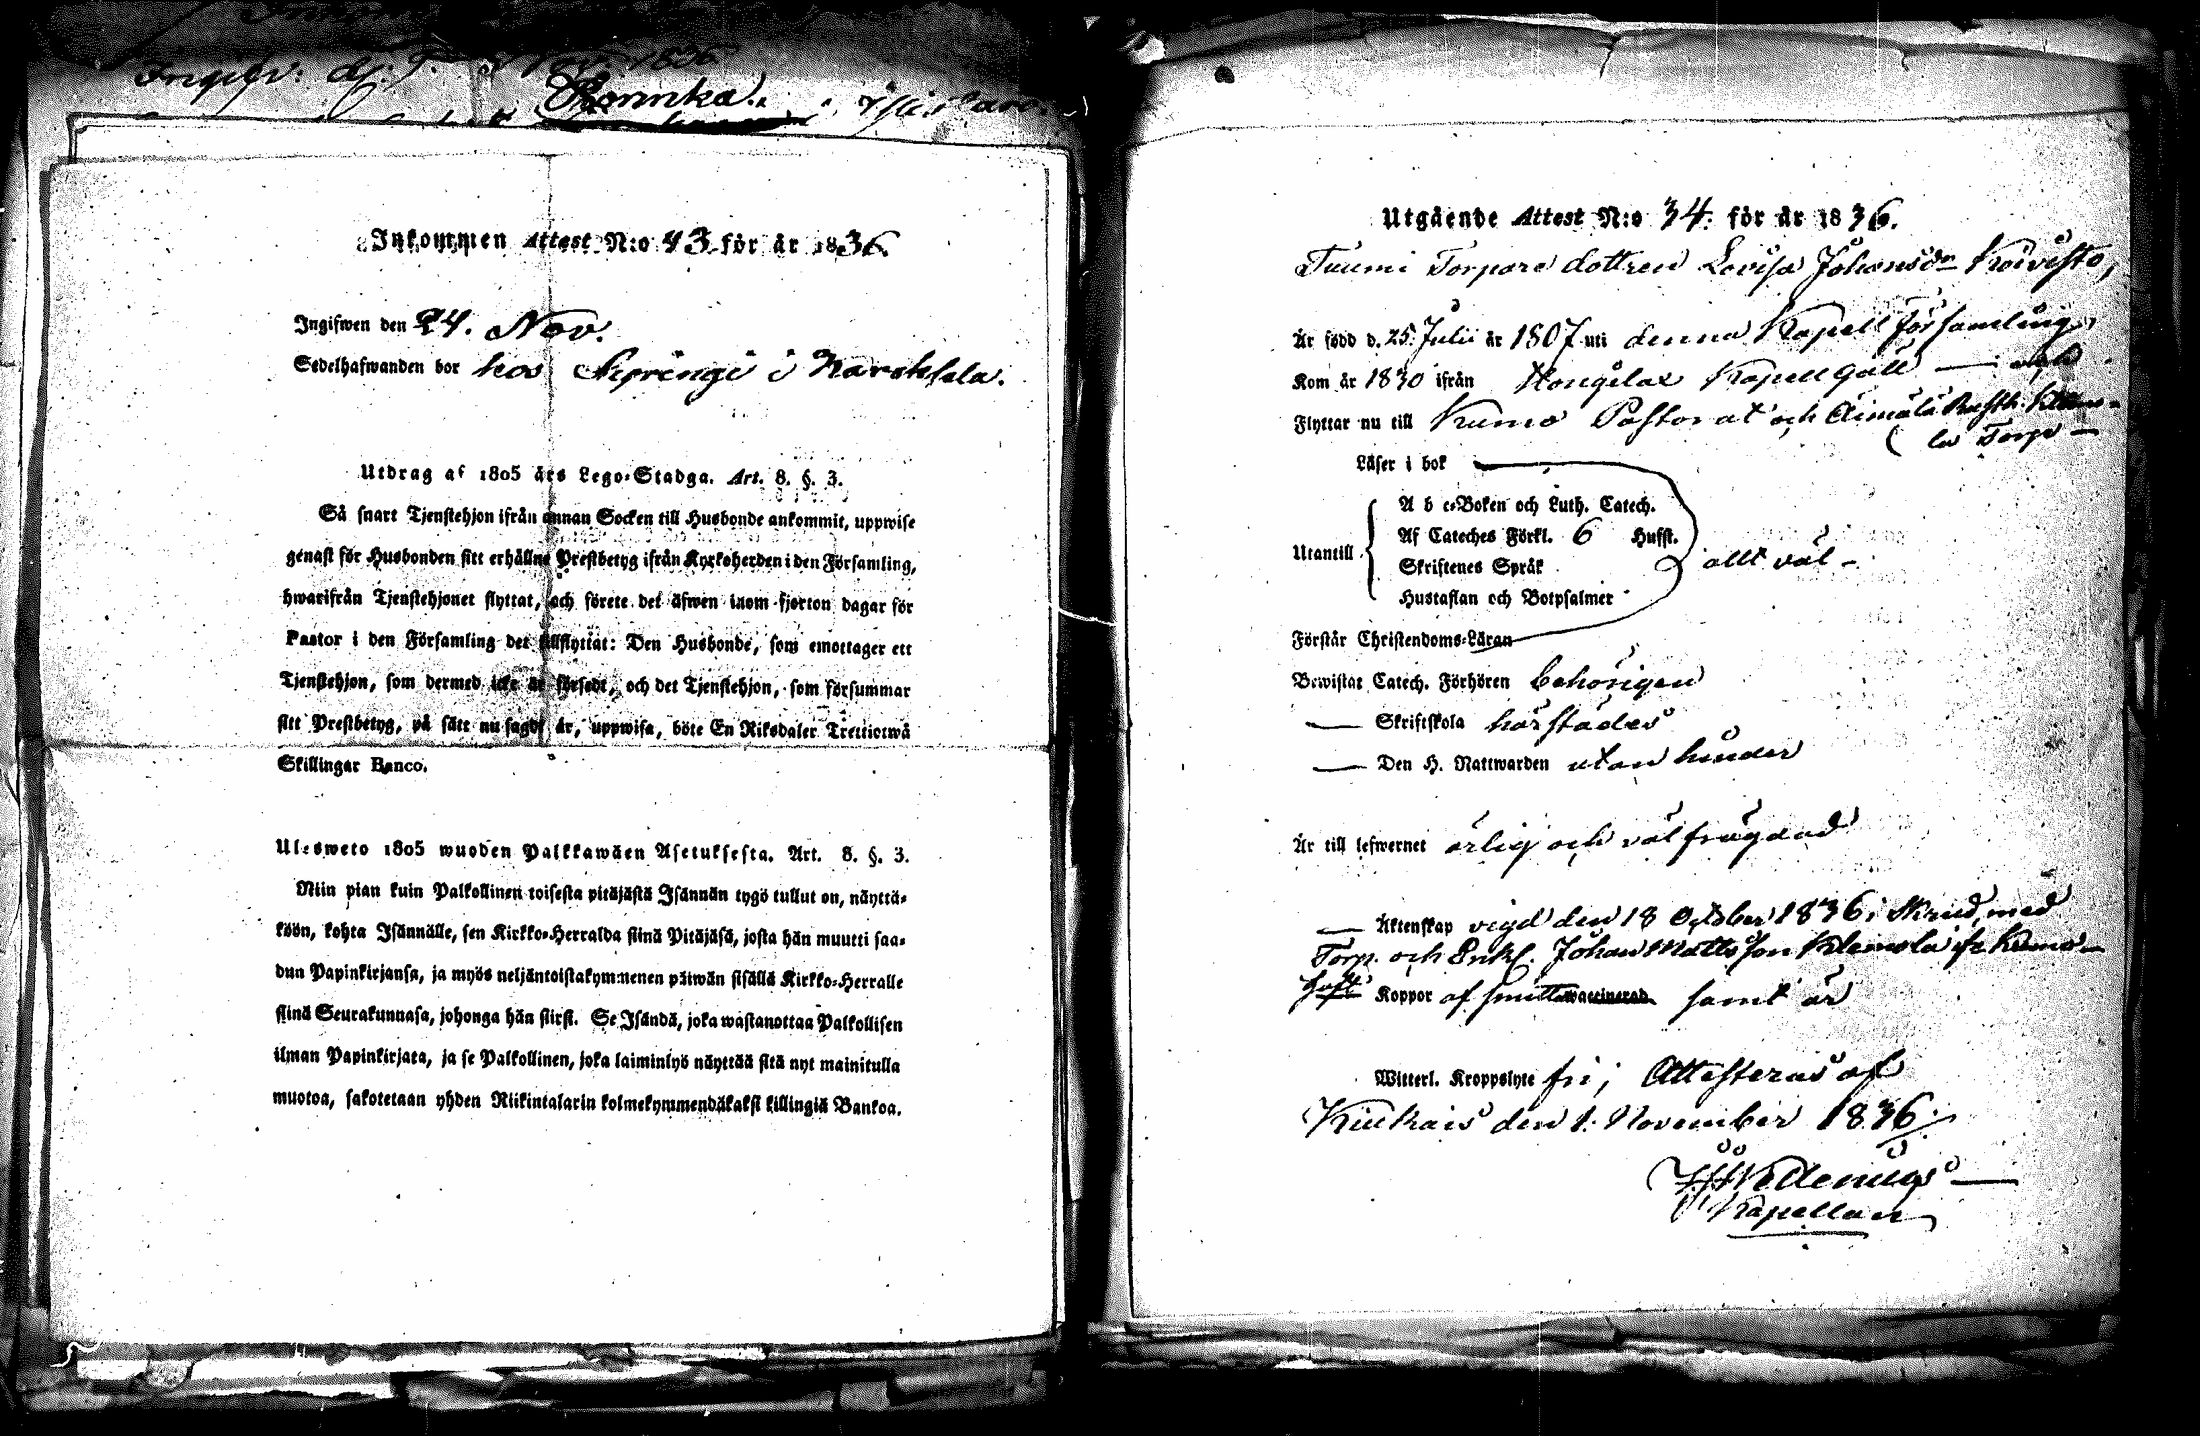 Ingifv. d. 9. Nov. 1836
Inkommen Attest N:o 43 för år 1836.
Ingifwen den 24. Nov.
Sedelhafwanden bor hos Sprengi i Karhola.
Utdrag af 1805 års Lego-Stadga. Art. 8. §. 3.
Så snart Tjenstehjon ifrån annan Socken till Husbonde ankommit, uppwise
genast för Husbonden sitt erhållne Prestbetyg ifrån Kyrkoherden i den Församling,
hwarifrån Tjenstehjonet flyttat, och förete det äfwen inom fjorton dagar för
Pastor i den Församling det tillflyttat: Den Husbonde, som emottager ett
Tjenstehjon, som dermed icke är försedt, och det Tjenstehjon, som försummar
sitt Prestbetyg, på sätt nu sagdt är, uppwisa, böte En Riksdaler Trettiotwå
Skillingar Banco.
Ulosweto 1805 wuoden Palkkawäen Asetuksesta. Art. 8. §. 3.
Niin pian kuin Palkollinen toisesta pitäjästä Isännän tygö tullut on, näyttä-
köön, kohta Isännälle, sen Kirkko-Herralda siinä Pitäjäsä, josta hän muutti saa-
dun Papinkirjansa, ja myös neljäntoistakymmenen päiwän sisällä Kirkko-Herralle
siinä Seurakunnasa, johonga hän siirsi. Se Isändä, joka wastanottaa Palkollisen
ilman Papinkirjata, ja se Palkollinen, joka laiminlyö näyttää sitä nyt mainitulla
muotoa, sakotetaan yhden Riikintalarin kolmekymmendäkaksi killingiä Bankoa.
Utgående Attest N:o 34. för år 1836.
Tuumi Torpare dottren Lovisa Johansdr Koivisto,
Är född d. 25. Julii år 1807 uti denna Kapell församling,
Kom år 1830 ifrån Hongilax Kapell gäll — och
Flyttar nu till Kumo Pastorat och Äimälä Rusth. Klemo-
la Torp —
Läser i bok
A b c-Boken och Luth. Catech.
Af Cateches Förkl. 6 Hufst.
Utantill Skriftenes Språk allt väl -
Hustaflan och Botpsalmer
Förstår Christendoms-Läran
Bewistat Catech. Förhören behörigen
— Skriftskola härstädes
— Den H. Nattwarden utan hinder
Är till lefwernet ärlig och väl frägdad
— Äktenskap vigd den 18 October 1836 i Skrud, med
Torp. och Enkl. Johan Mattsson Klemola ifr. Kumo —
haft Koppor af smitta waccinerad samt är
Witterl. Kroppslyte fri; Attesteras af
Kiukais den 1. November 1836.
Kapellan